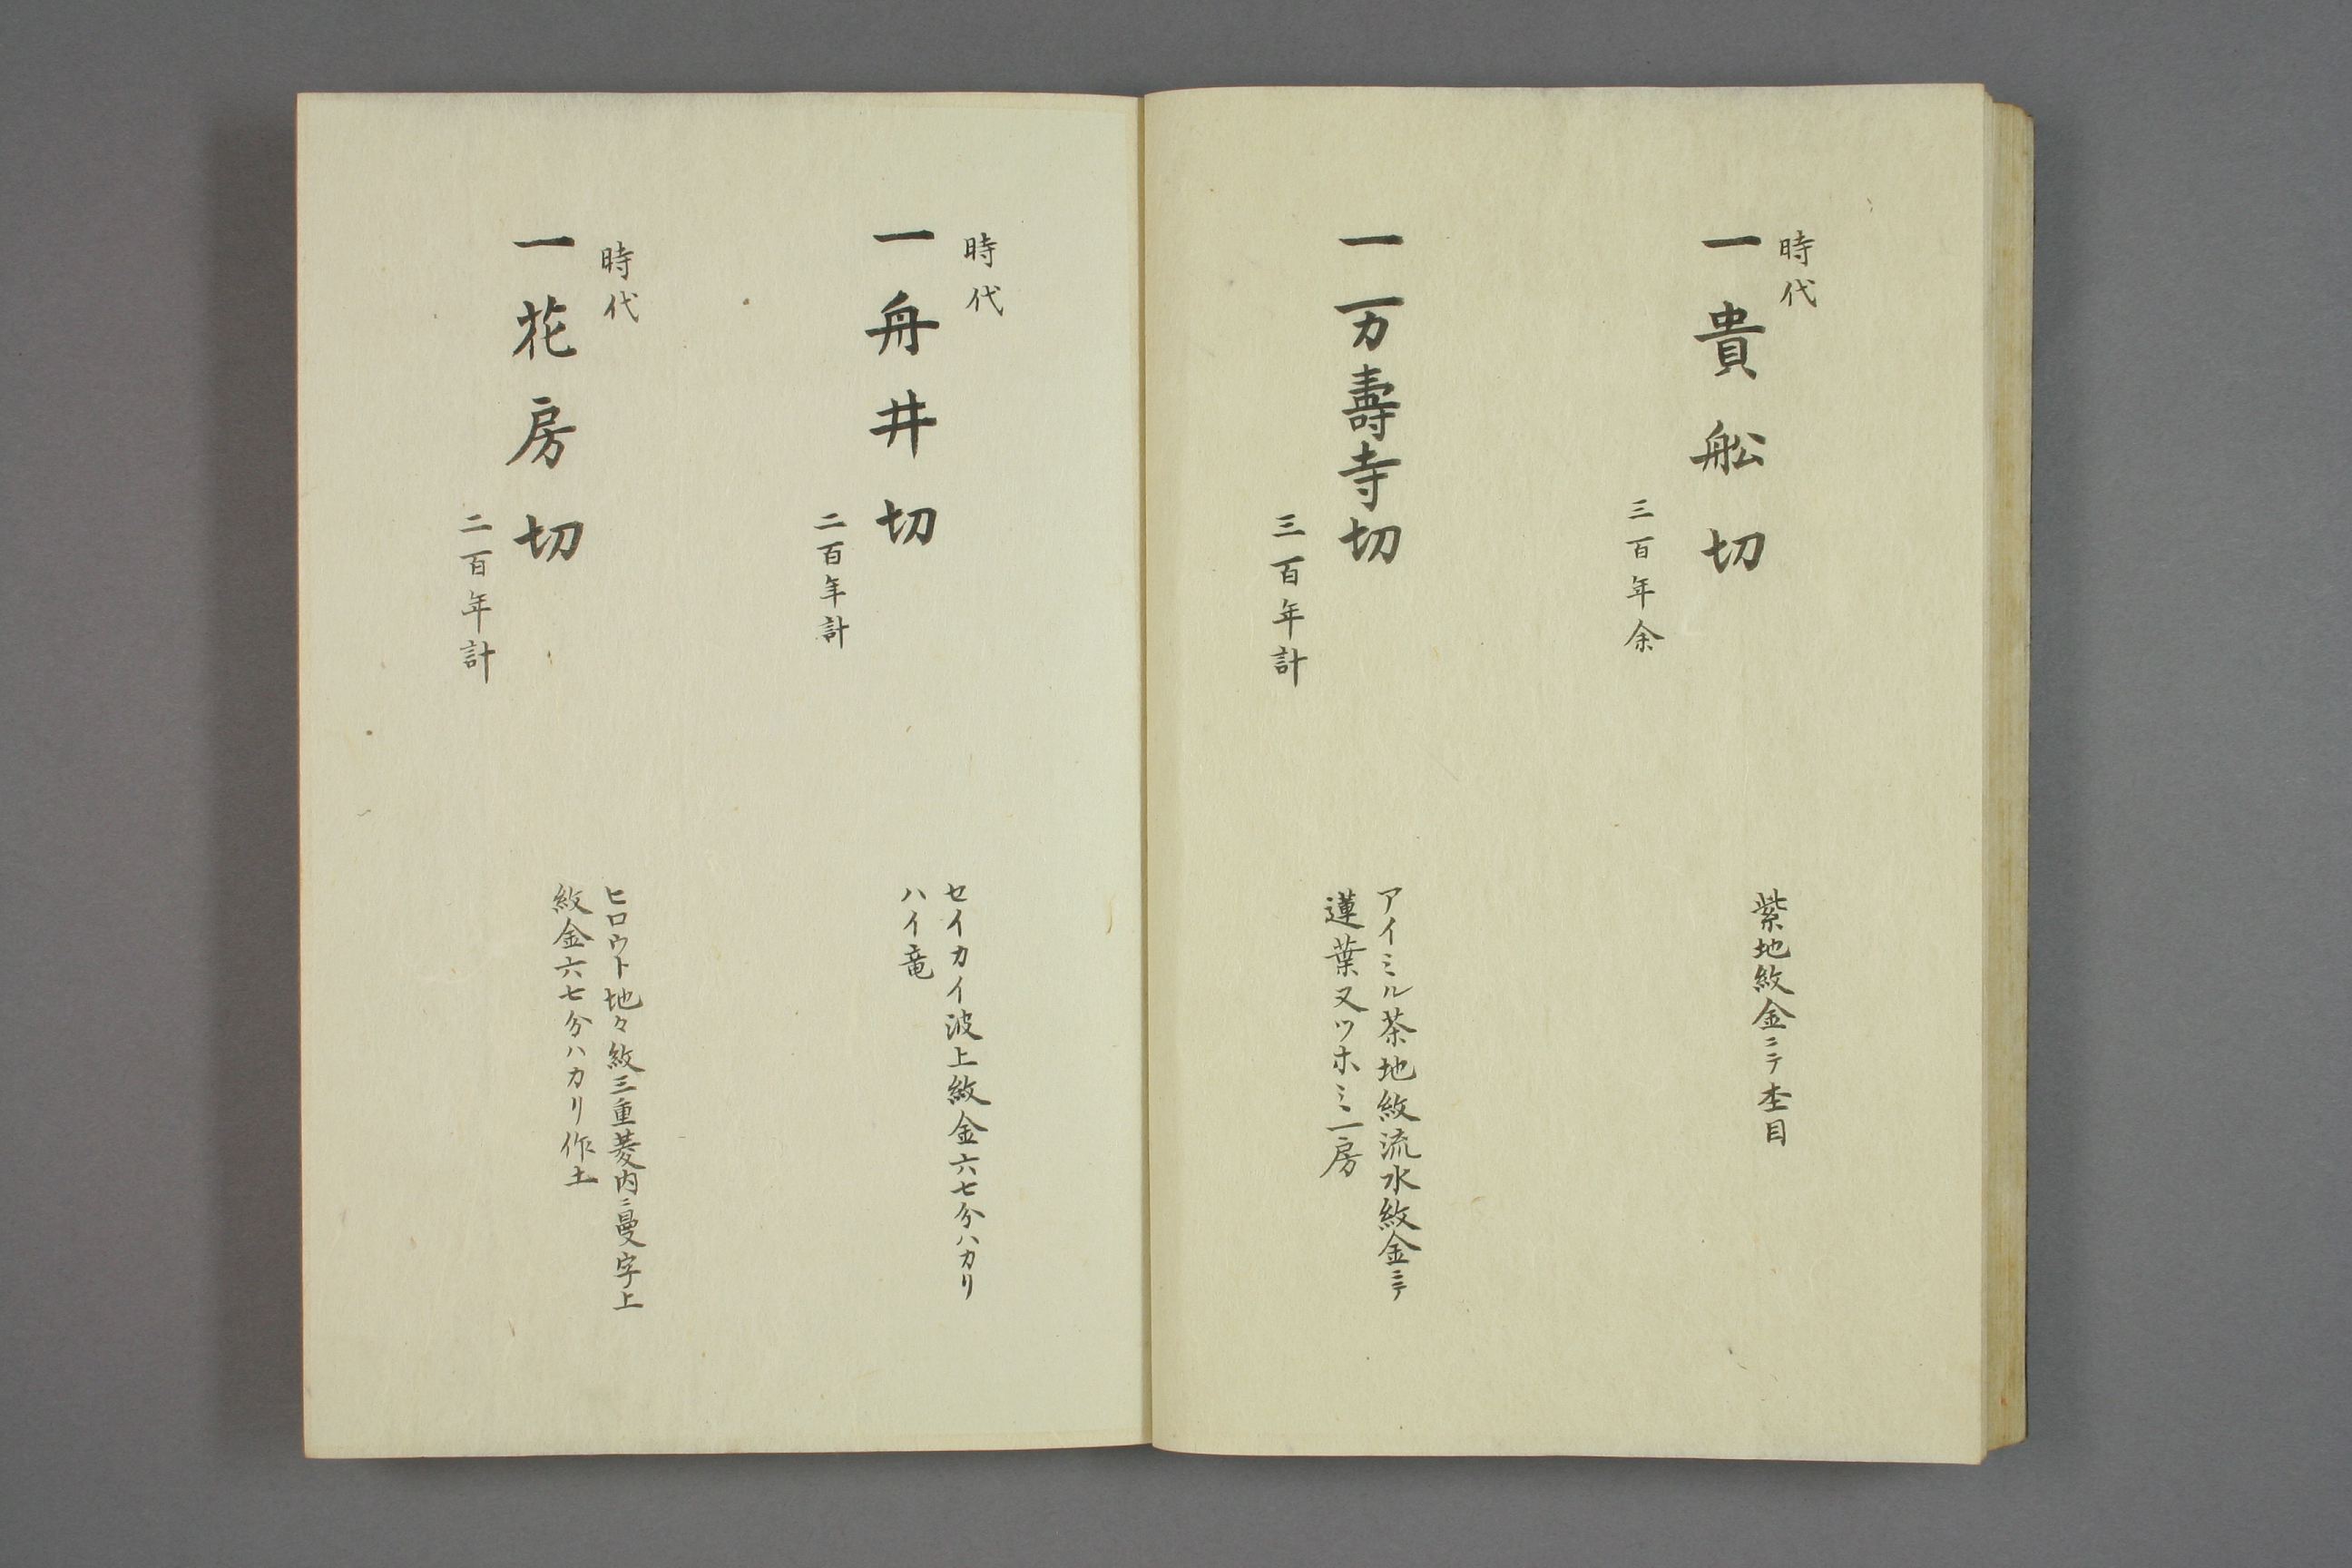 時代
一貴舩切
三百年余
紫地紋金ニテ杢目
一万壽寺切
三百年計
アイミル茶地紋流水紋金ニテ
蓮葉又ツホミ一房
時代
一舟井切
二百年計
セイカイ波上紋金六七分ハカリ
ハイ竜
時代
一花房切
二百年計
ヒロウト地々紋三重菱内ニ曼字上
紋金六七分ハカリ作土